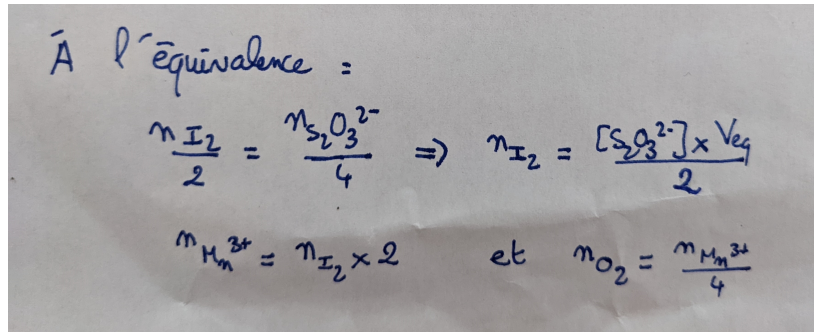 À l'équivalence :
n I₂ / 2 = n S₂O₃²⁻ / 4 ⇒ n I₂ = [S₂O₃²⁻] × Veq / 2
n Mn³⁺ = n I₂ × 2 et n O₂ = n Mn³⁺ / 4